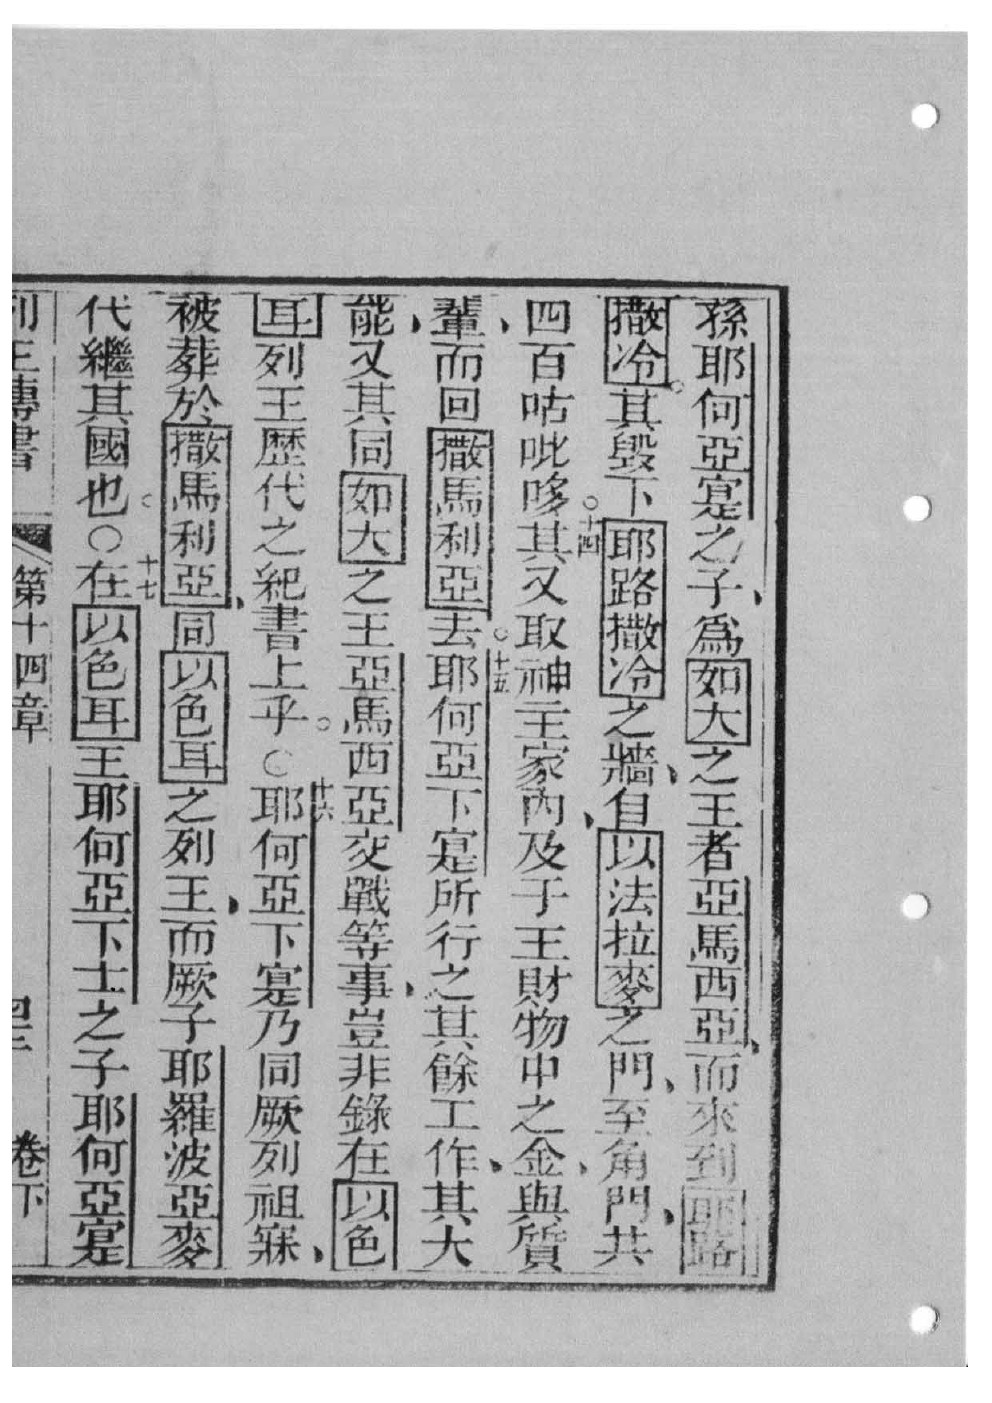 孫耶何亞寔之子、爲如大之王者亞馬西亞、而來到耶路
撒冷。其毀下耶路撒冷之牆、自以法拉麥之門、至角門、共
四百咕吡哆。十四其又取神主家內、及于王財物中之金、與質
輩、而回撒馬利亞去。十五耶何亞下寔所行之其餘工作、其大
能、又其同如大之王亞馬西亞交戰等事、豈非錄在以色
耳列王歷代之紀書上乎。〇十六耶何亞下寔乃同厥列祖寐、
被葬於撒馬利亞、同以色耳之列王、而厥子耶羅波亞麥
代繼其國也。〇十七在以色耳王耶何亞下士之子耶何亞寔
列王傳書 第十四章 卷下